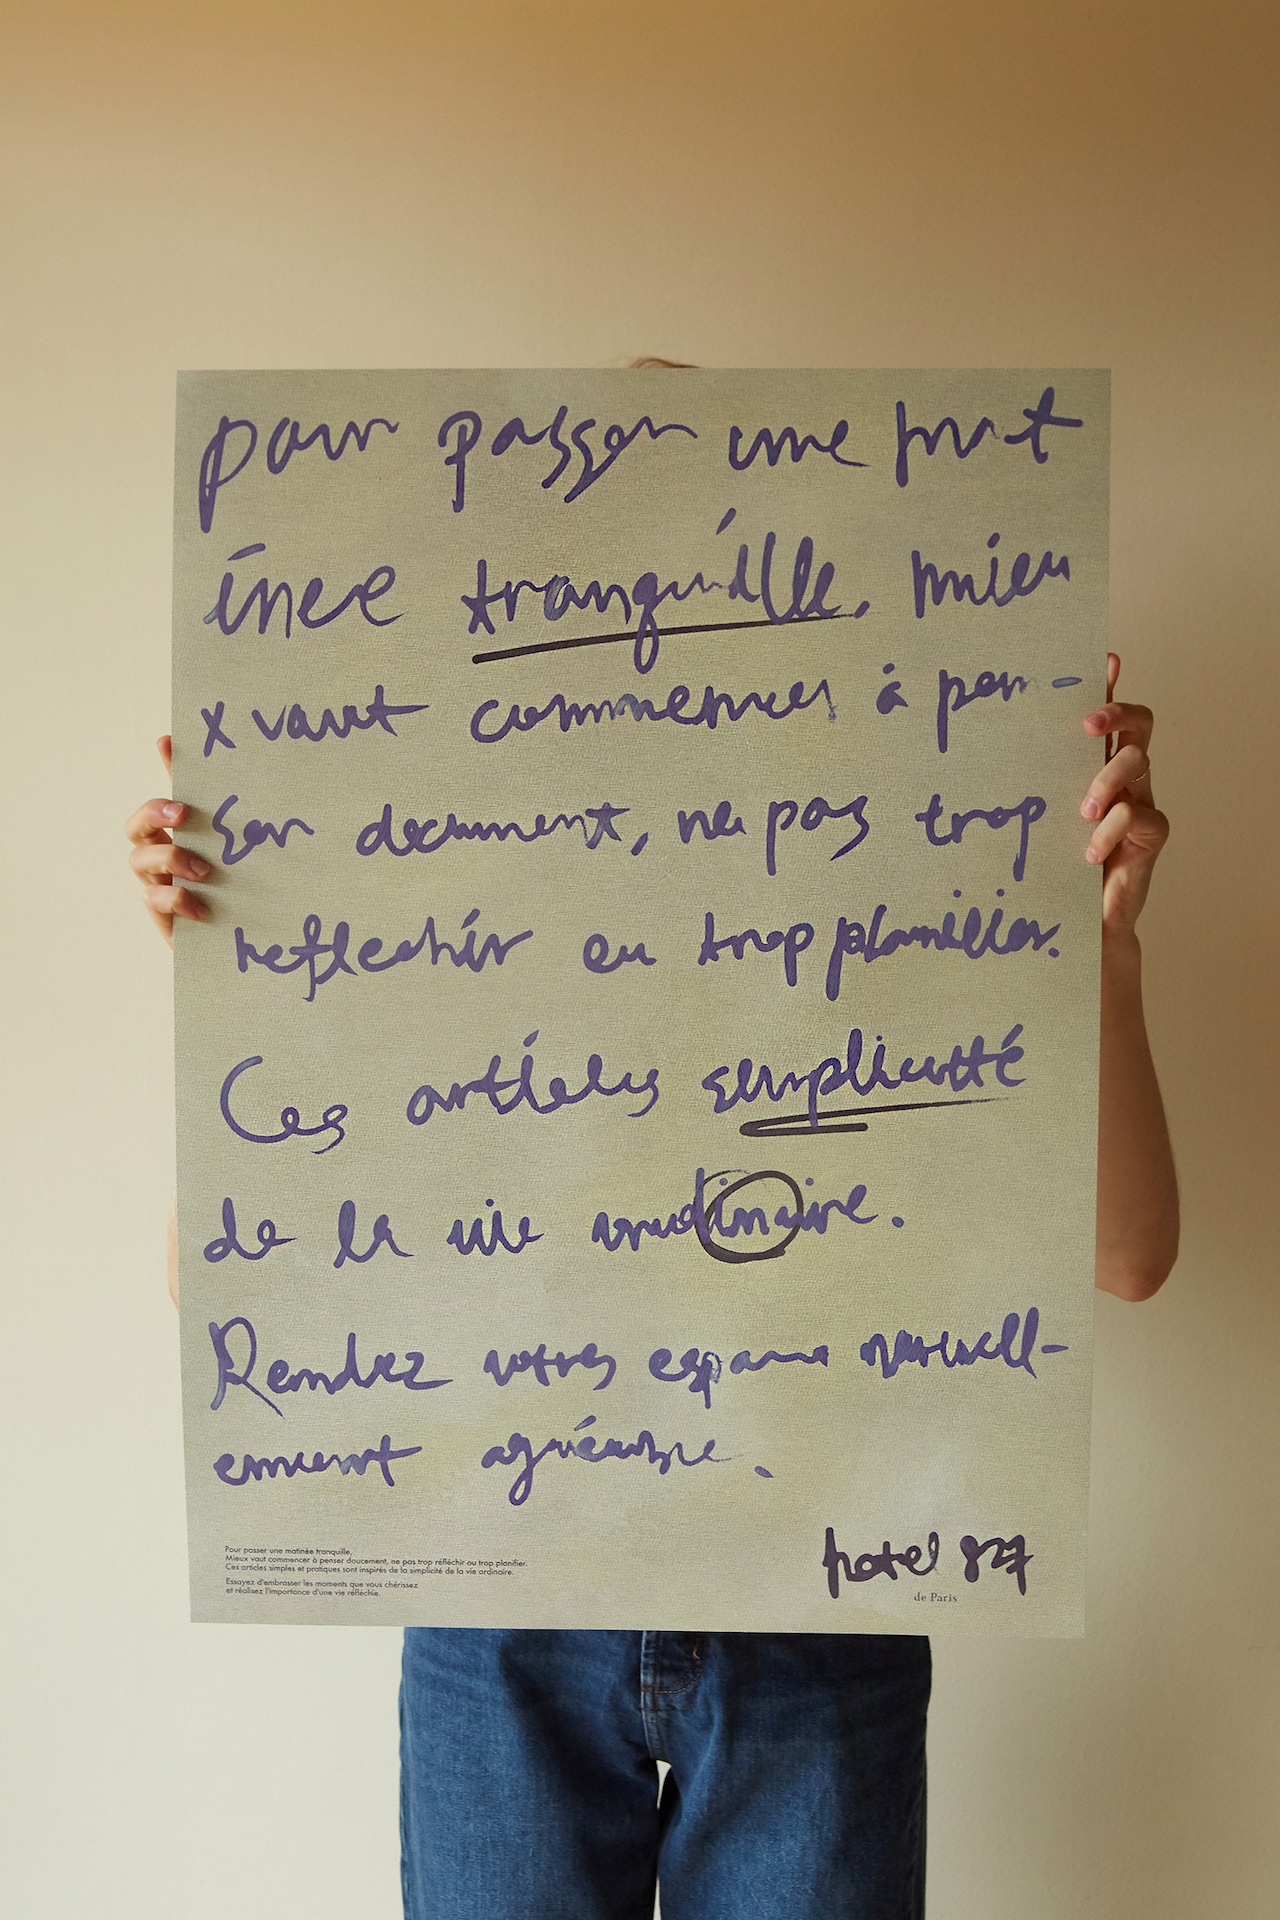 pour passer une mat
inee tranquille. mieu
x vaut commencer à pen-
ser document, ne pas trop
reflechir ou trop planifier.
Ces articles simplicitté
de la vie
Rendez votres espace
ement
hotel 827
de Paris
Pour passer une matinée tranquille,
Mieux vaut commencer à penser doucement, ne pas trop réfléchir ou trop planifier.
Ces articles simples et pratiques sont inspirés de la simplicité de la vie ordinaire.
Essayez d'embrasser les moments que vous chérissez
et réalisez l'importance d'une vie refléchie.